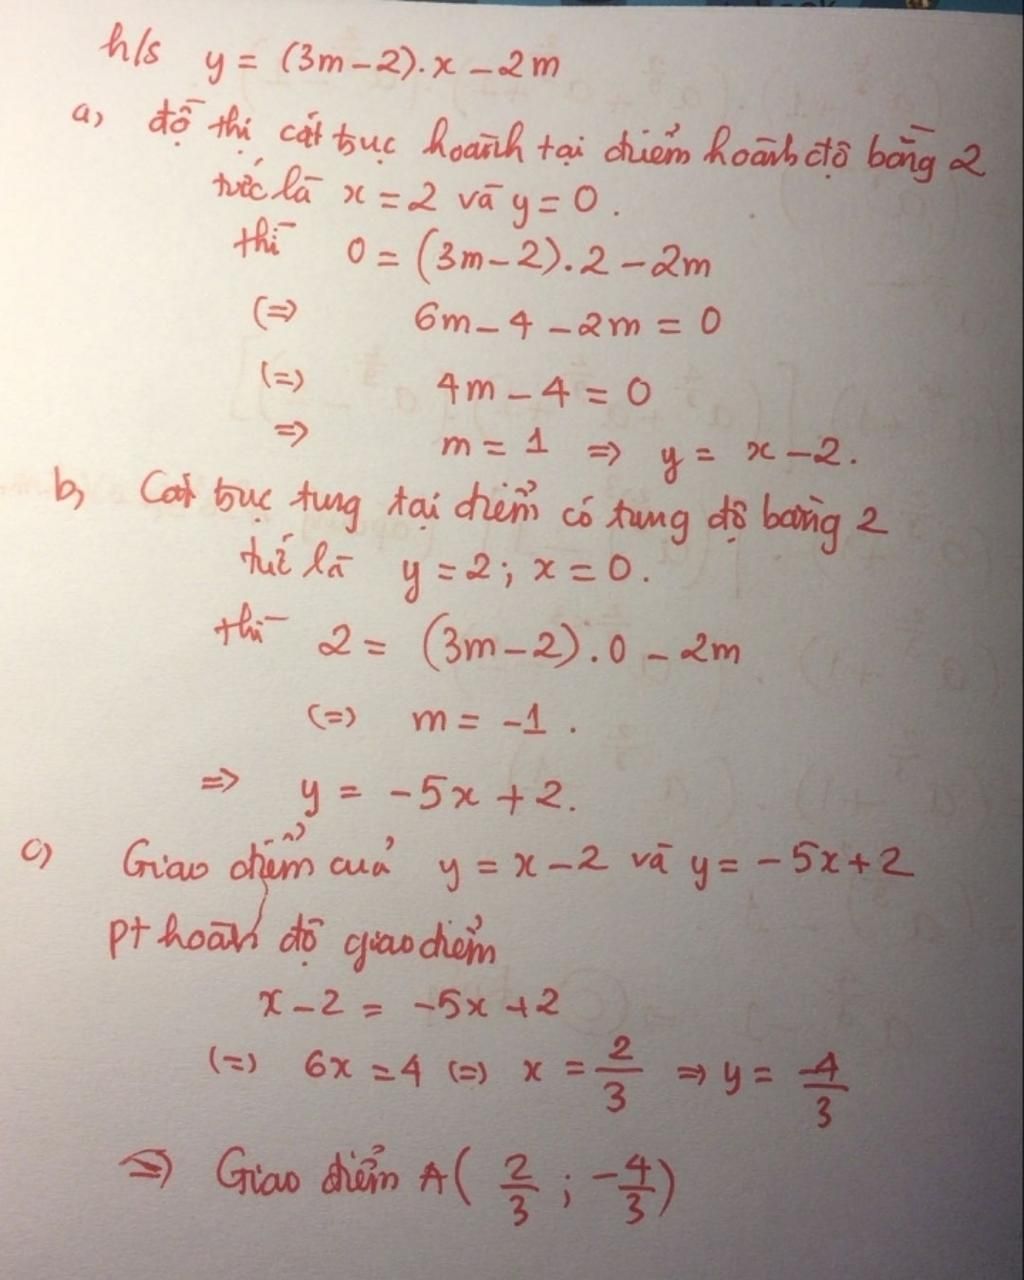 h/s y = (3m-2).x - 2m
a, đồ thị cắt trục hoành tại điểm hoành độ bằng 2
tức là x = 2 và y = 0.
thì 0 = (3m-2).2 - 2m
(=) 6m - 4 - 2m = 0
(=) 4m - 4 = 0
=> m = 1 => y = x - 2.
b, Cắt trục tung tại điểm có tung độ bằng 2
tức là y = 2; x = 0.
thì 2 = (3m-2).0 - 2m
(=) m = -1.
=> y = -5x + 2.
c) Giao điểm của y = x - 2 và y = -5x + 2
pt hoành độ giao điểm
x - 2 = -5x + 2
(=) 6x = 4 (=) x = 2/3 => y = -4/3
=> Giao điểm A(2/3; -4/3)